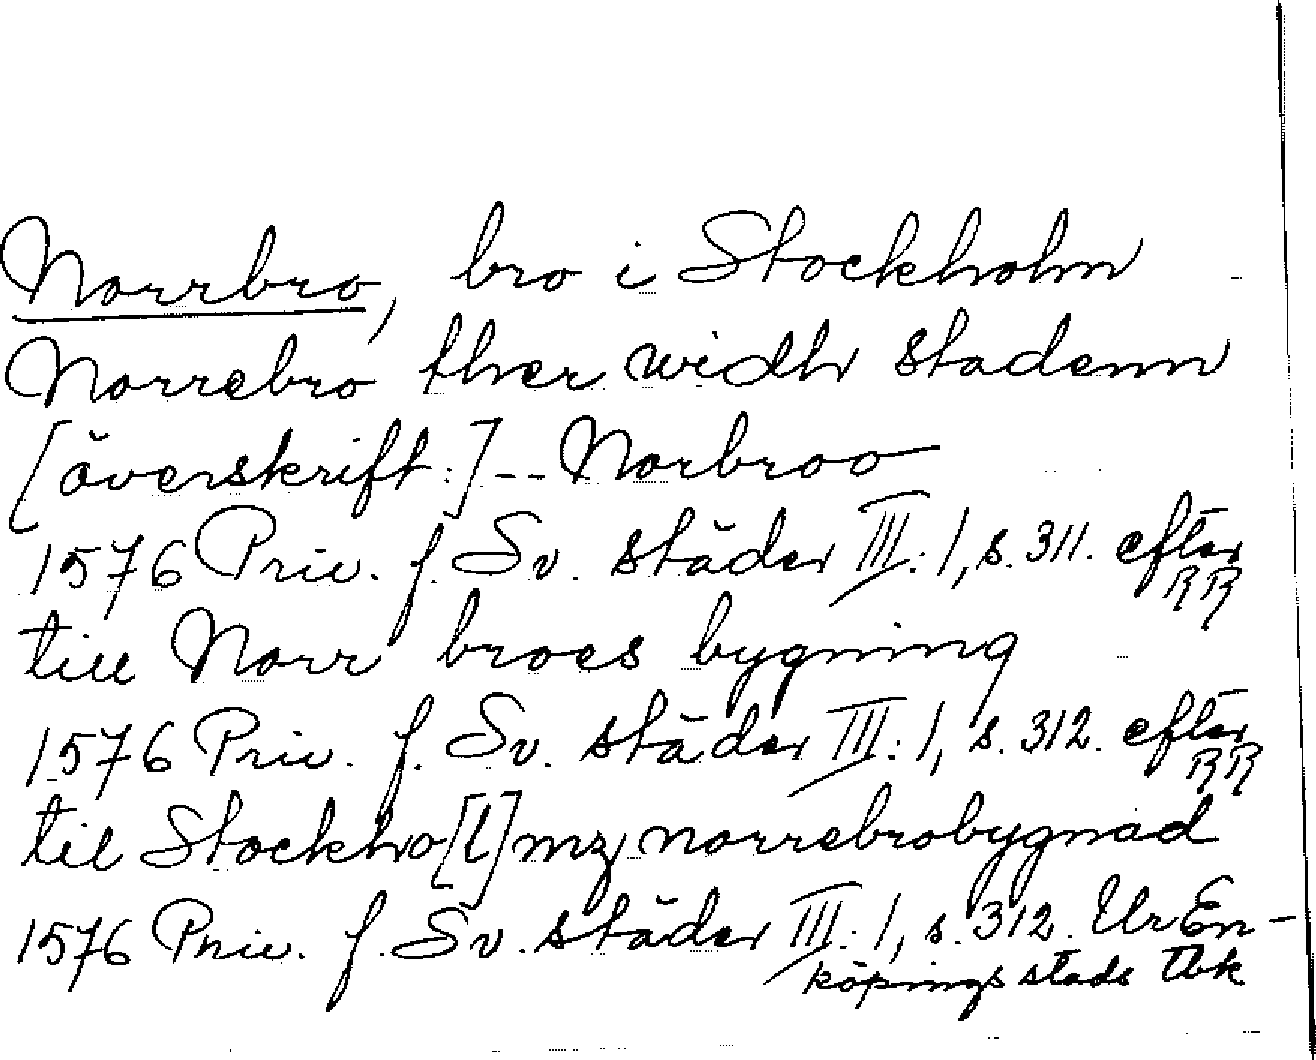 Norrbro, bro i Stockholm
Norrebro ther widh stadenn
[överskrift.] -- Norbroo
1576 Priv. f. Sv. städer III: 1, s. 311. efter RR
till Norr broes bygning
1576 Priv. f. Sv. städer III: 1, s. 312. efter RR
til Stockho[l]mz norrebrobygnad
1576 Priv. f. Sv. städer III: 1, s. 312. Ur En-
köpings stads tbk